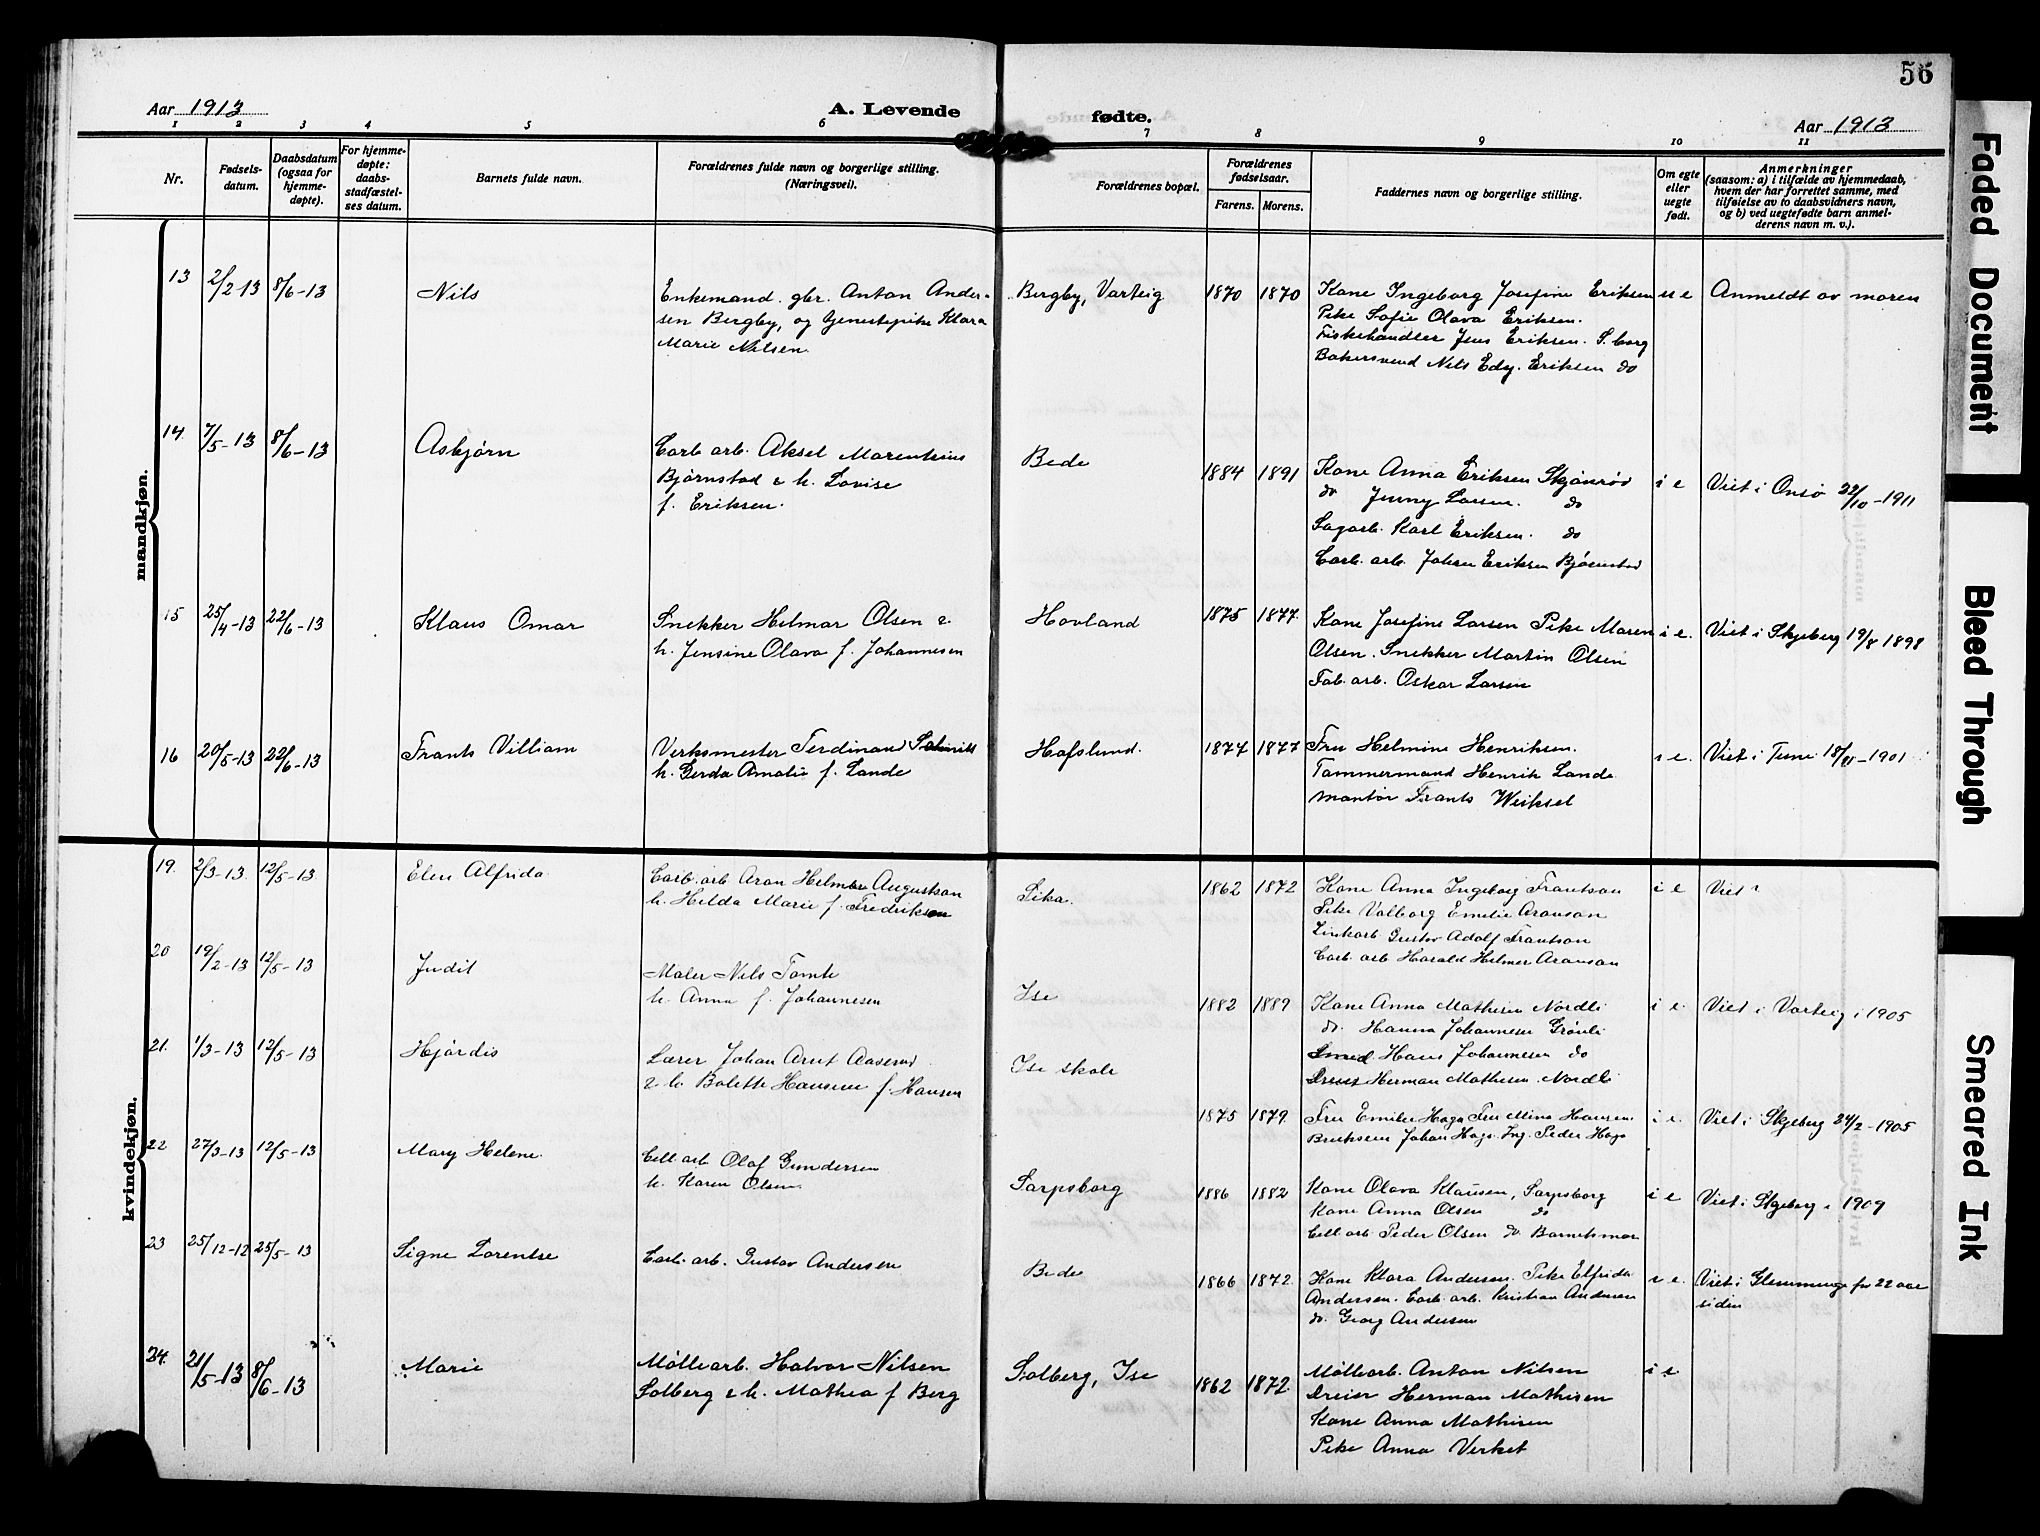 56
Aar 1913
A. Levende
fødte.
Aar 1913
1 2 3 4 5 6 7 8 9 10 11
Nr.
Fødsels-
datum.
Daabsdatum
(ogsaa for
hjemme-
døpte).
For hjemme-
døpte:
daabs-
stadfæstel-
ses datum.
Barnets fulde navn.
Forældrenes fulde navn og borgerlige stilling.
(Næringsvei).
Forældrenes bopæl.
Forældrenes
fødselsaar.
Farens. Morens.
Faddernes navn og borgerlige stilling.
Om egte
eller
uegte
født.
Anmerkninger
(saasom: a) i tilfælde av hjemmedaab,
hvem der har forrettet samme, med
tilføielse av to daabsvidners navn,
og b) ved uegtefødte barn anmel-
derens navn m. v.).
mandkjøn.
13 2/2-13 8/6-13 Nils
Enkemand. gbr. Anton Ander-
sen Bergby, og tjenestepike Klara
Marie Nilsen.
Bergby, Varteig 1870 1870
Kone Ingeborg Josefine Eriksen
Pike Sofie Olava Eriksen.
Fiskehandler Jens Eriksen. S.borg
Bakersvend Nils Edv. Eriksen do
u e Anmeldt av moren
14. 7/5-13 8/6-13 Asbjørn
Carb. arb. Aksel Marentius
Bjørnstad & h. Lovise
f. Eriksen.
Bede 1884 1891
Kone Anna Eriksen Skjønrød
do Jenny Larsen. do
Sagarb. Karl Eriksen. do
Carb. arb. Johan Eriksen Bjørnstad
i e Viet i Onsø 22/10-1911
15 25/4-13 22/6-13 Klaus Omar
Snekker Helmar Olsen &
h. Jensine Olava f. Johannesen
Hovland 1875 1877.
Kone Josefine Larsen Pike Maren
Olsen. Snekker Martin Olsen
Fab. arb. Oskar Larsen
i e. Viet i Skjeberg 19/8 1898
16 20/5-13 22/6-13 Frants Villiam
Verksmester Ferdinand
h. Gerda Amalie f. Lande
Hafslund. 1874 1877
Fru Helmine Henriksen.
Tømmermand Henrik Lande
Montør Frants Weiksel
i e. Viet i Tune 18/11-1901
kvindekjøn.
19. 2/3-13. 12/5-13 Elen Alfrida
Carb. arb. Aron Helmer Augustson
h. Hilda Marie f. Fredriksen
Sika. 1862 1872
Kone Anna Ingeborg Frantson
Pike Valborg Emelie Aronson
Zinkarb. Gustav Adolf Frantson
Carb. arb. Harald Helmer Aronson
i e Viet ?
20 19/2-13 12/5-13 Judit
Maler Nils Tomte
h. Anna f. Johannesen
Ise 1882 1889
Kone Anna Mathisen Nordli
do. Hanna Johannesen Grønli
Smed Hans Johannesen do
Dreier Herman Mathisen. Nordli
i e. Viet i Varteig i 1905
21. 1/3-13 12/5-13 Hjørdis
Lærer Johan Arnt Aaserud
& h. Bolette Hansine f. Hansen
Ise skole 1875 1879.
Fru Emilie Haga Fru Mina Hansen
Brukseier Johan Haga. Ing. Peder Haga
i e. Viet i Skjeberg 24/2-1905
22 27/3-13 12/5-13 Mary Helene.
Cell. arb. Olaf Gundersen
h. Karen Olsen.
Sarpsborg 1886 1882
Kone Olava Klausen, Sarpsborg
Kone Anna Olsen do
Cell. arb. Peder Olsen do.
i e Viet i Skjeberg i 1909
23 25/12-12 25/5-13 Signe Lorentse
Carb. arb. Gustav Andersen
Bede 1866 1872.
Kone Klara Andersen. Pike Elfrida
Andersen. Carb. arb. Kristian Andersen
do. Georg Andersen
i e. Viet i Glemminge for 22 aar
siden
24. 21/5-13 8/6-13 Marie
Møllearb. Halvor Nilsen
Solberg & h. Mathea f Berg
Solberg, Ise 1862 1872.
Møllearb. Anton Nilsen
Dreier Herman Mathisen
Kone Anna Mathisen
Pike Anna Verket
i e
Faded Document
Bleed Through
Smeared Ink